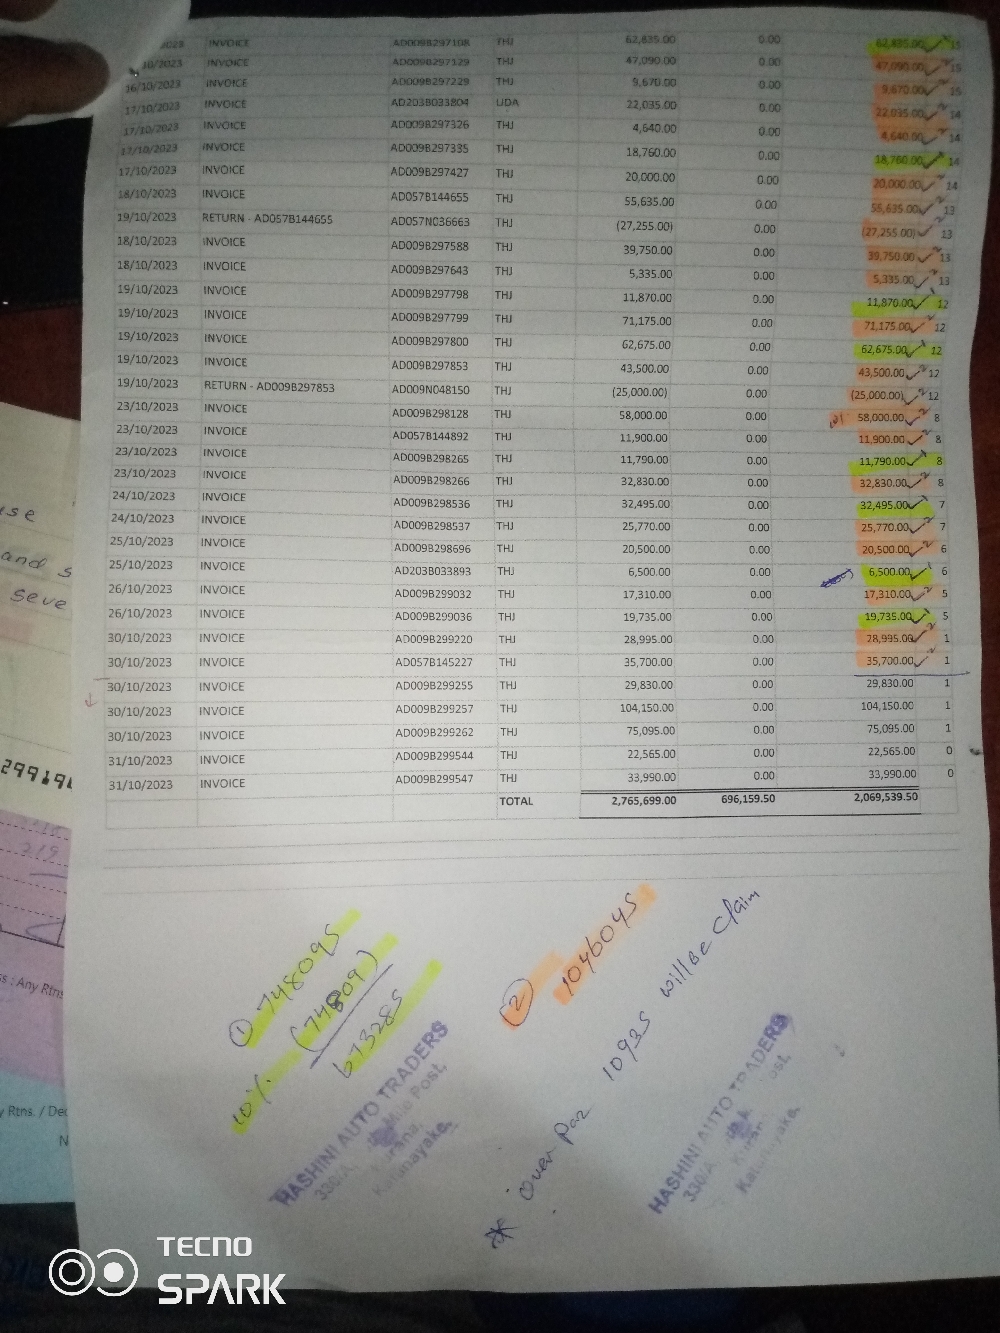 INVOICE AD009B297108 THJ 62,835.00 0.00 62,835.00 15
10/2023 INVOICE AD009B297129 THJ 47,090.00 0.00 47,090.00 15
16/10/2023 INVOICE AD009B297229 THJ 9,670.00 0.00 9,670.00 15
17/10/2023 INVOICE AD203B033804 UDA 22,035.00 0.00 22,035.00 14
17/10/2023 INVOICE AD009B297326 THJ 4,640.00 0.00 4,640.00 14
17/10/2023 INVOICE AD009B297335 THJ 18,760.00 0.00 18,760.00 14
17/10/2023 INVOICE AD009B297427 THJ 20,000.00 0.00 20,000.00 14
18/10/2023 INVOICE AD057B144655 THJ 55,635.00 0.00 55,635.00 13
19/10/2023 RETURN - AD057B144655 AD057N036663 THJ (27,255.00) 0.00 (27,255.00) 13
18/10/2023 INVOICE AD009B297588 THJ 39,750.00 0.00 39,750.00 13
18/10/2023 INVOICE AD009B297643 THJ 5,335.00 0.00 5,335.00 13
19/10/2023 INVOICE AD009B297798 THJ 11,870.00 0.00 11,870.00 12
19/10/2023 INVOICE AD009B297799 THJ 71,175.00 0.00 71,175.00 12
19/10/2023 INVOICE AD009B297800 THJ 62,675.00 0.00 62,675.00 12
19/10/2023 INVOICE AD009B297853 THJ 43,500.00 0.00 43,500.00 12
19/10/2023 RETURN - AD009B297853 AD009N048150 THJ (25,000.00) 0.00 (25,000.00) 12
23/10/2023 INVOICE AD009B298128 THJ 58,000.00 0.00 58,000.00 8
23/10/2023 INVOICE AD057B144892 THJ 11,900.00 0.00 11,900.00 8
23/10/2023 INVOICE AD009B298265 THJ 11,790.00 0.00 11,790.00 8
23/10/2023 INVOICE AD009B298266 THJ 32,830.00 0.00 32,830.00 8
24/10/2023 INVOICE AD009B298536 THJ 32,495.00 0.00 32,495.00 7
24/10/2023 INVOICE AD009B298537 THJ 25,770.00 0.00 25,770.00 7
25/10/2023 INVOICE AD009B298696 THJ 20,500.00 0.00 20,500.00 6
25/10/2023 INVOICE AD203B033893 THJ 6,500.00 0.00 6,500.00 6
26/10/2023 INVOICE AD009B299032 THJ 17,310.00 0.00 17,310.00 5
26/10/2023 INVOICE AD009B299036 THJ 19,735.00 0.00 19,735.00 5
30/10/2023 INVOICE AD009B299220 THJ 28,995.00 0.00 28,995.00 1
30/10/2023 INVOICE AD057B145227 THJ 35,700.00 0.00 35,700.00 1
30/10/2023 INVOICE AD009B299255 THJ 29,830.00 0.00 29,830.00 1
30/10/2023 INVOICE AD009B299257 THJ 104,150.00 0.00 104,150.00 1
30/10/2023 INVOICE AD009B299262 THJ 75,095.00 0.00 75,095.00 1
31/10/2023 INVOICE AD009B299544 THJ 22,565.00 0.00 22,565.00 0
31/10/2023 INVOICE AD009B299547 THJ 33,990.00 0.00 33,990.00 0
TOTAL 2,765,699.00 696,159.50 2,069,539.50
① 748095
10% (74809)
673285
② 1046045
* over Pa 1093S will be claim
HASHINI AUTO TRADERS
330/A, Post,
Kurana,
Katunayake.
HASHINI AUTO TRADERS
330/A, Post,
Kuran
Katunayake.
and s
seve
: Any Rtns
Rtns. / Ded
TECNO
SPARK